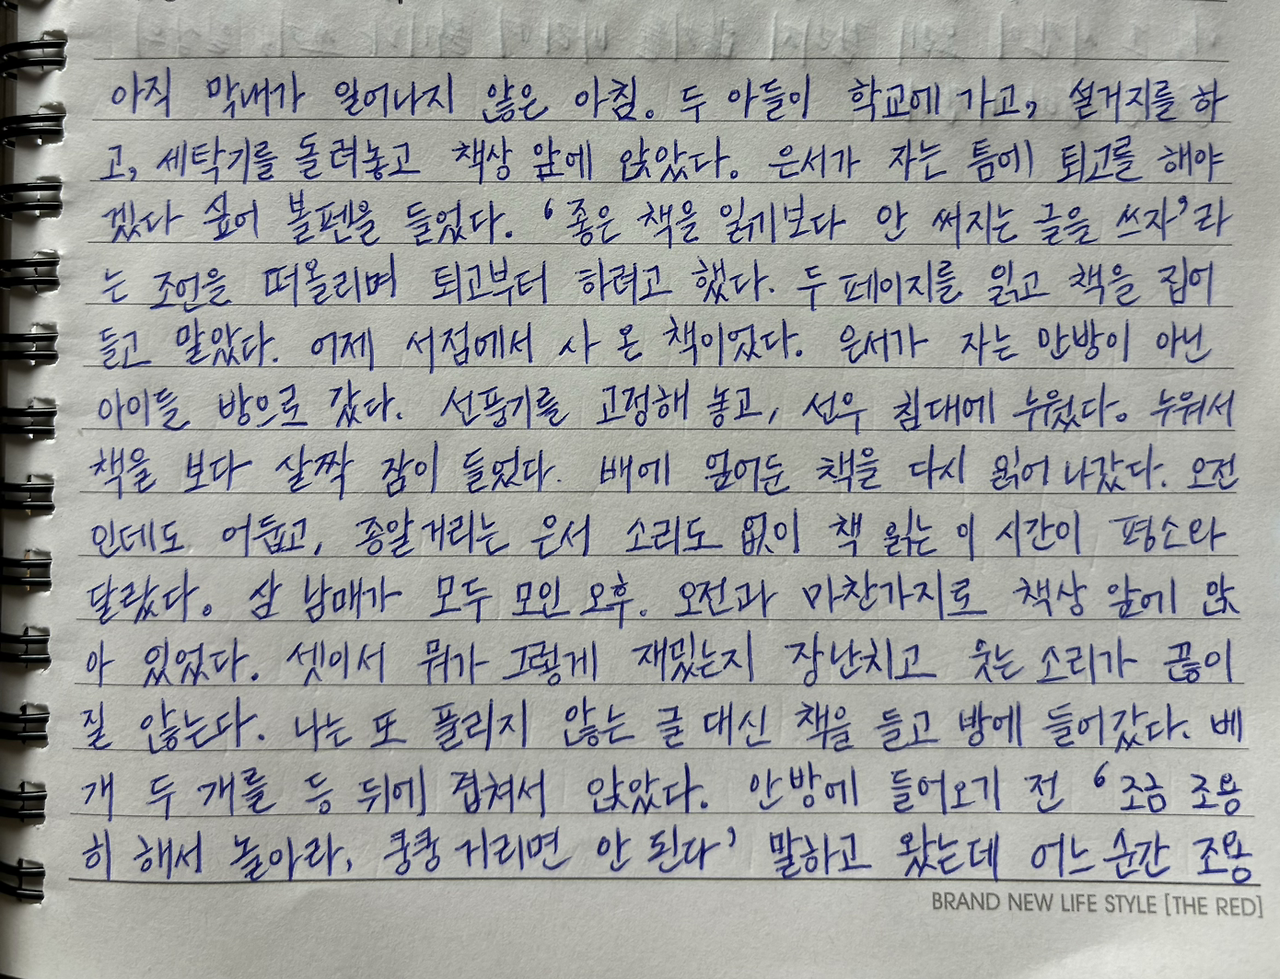 아직 막내가 일어나지 않은 아침. 두 아들이 학교에 가고, 설거지를 하
고, 세탁기를 돌려놓고 책상 앞에 앉았다. 은서가 자는 틈에 퇴고를 해야
겠다 싶어 볼펜을 들었다. ‘좋은 책을 읽기보다 안 써지는 글을 쓰자’라
는 조언을 떠올리며 퇴고부터 하려고 했다. 두 페이지를 읽고 책을 집어
들고 말았다. 어제 서점에서 사 온 책이었다. 은서가 자는 안방이 아닌
아이들 방으로 갔다. 선풍기를 고정해 놓고, 선우 침대에 누웠다. 누워서
책을 보다 살짝 잠이 들었다. 배에 엎어둔 책을 다시 읽어 나갔다. 오전
인데도 어둡고, 종알거리는 은서 소리도 없이 책 읽는 이 시간이 평소와
달랐다. 삼 남매가 모두 모인 오후. 오전과 마찬가지로 책상 앞에 앉
아 있었다. 셋이서 뭐가 그렇게 재밌는지 장난치고 웃는 소리가 끊이
질 않는다. 나는 또 풀리지 않는 글 대신 책을 들고 방에 들어갔다. 베
개 두 개를 등 뒤에 겹쳐서 앉았다. 안방에 들어오기 전 ‘조금 조용
히 해서 놀아라, 쿵쿵 거리면 안 된다’ 말하고 왔는데 어느 순간 조용
BRAND NEW LIFE STYLE [THE RED]